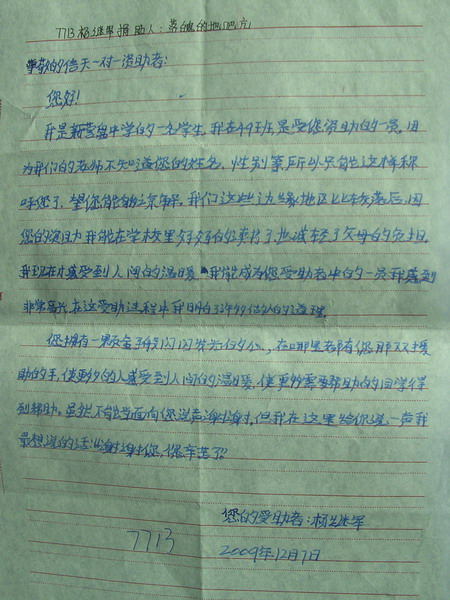 7713杨继军捐助人:落魄的地地方
尊敬的信天一对一资助者:
您好!
我是新营盘中学的一名学生,我在49班,是受您资助的一员,因
为我们的老师不知道您的姓名、性别等,所以只能这样称
呼您了,望您能够谅解。我们这些边缘地区比较落后,因
您的资助我能在学校里好好的读书了,也减轻了父母的负担,
我现在才感受到人间的温暖,我能成为您受助者中的一员我感到
非常荣光,在这受助过程中我明白了许多做人的道理。
您拥有一颗金子般闪闪发光的心,在哪里都有您那双援
助的手,使更多的人感受到人间的温暖,使更多需要帮助的同学得
到帮助。虽然不能当面向您说声谢谢,但我在这里给你道一声我
最想说的话:“谢谢您,您辛苦了”
您的受助者:杨继军
7713
2009年12月7日